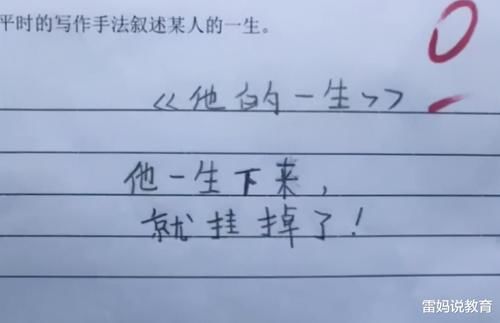 平时的写作手法叙述某人的一生。
0
《他的一生》
他一生下来，
就挂掉了！
雷妈说教育